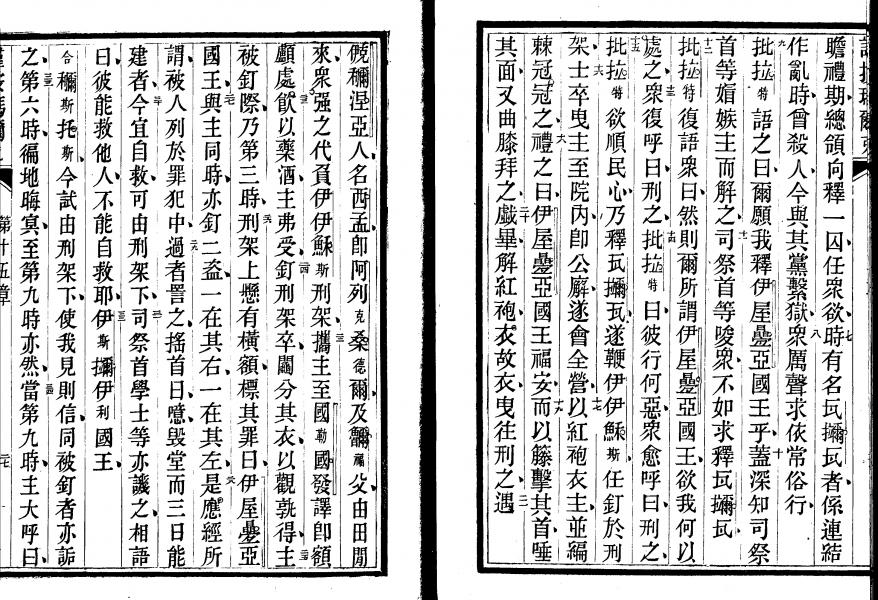 瞻禮期總領向釋一囚任衆欲七時有名瓦攦瓦者係連結
作亂時曾殺人今與其黨繫獄八衆厲聲求依常俗行九
批拉特語之曰爾願我釋伊屋疊亞國王乎十蓋深知司祭
首等媢嫉主而解之十一司祭首等唆衆不如求釋瓦攦瓦十二
批拉特復語衆曰然則爾所謂伊屋疊亞國王欲我何以
處之十三衆復呼曰刑之十四批拉特曰彼行何惡衆愈呼曰刑之十五
批拉特欲順民心乃釋瓦攦瓦遂鞭伊伊穌斯任釘於刑
架十六士卒曳主至院內即公廨遂會全營十七以紅袍衣主並編
棘冠冠之十八禮之曰伊屋疊亞國王福安十九而以籐擊其首唾
其面又曲膝拜之二十戲畢解紅袍衣故衣曳往刑之二一遇
從穪涅亞人名西孟即阿列克桑德爾及爾福父由田間
來衆强之代負伊伊穌斯刑架二二攜主至國勒國發譯即額
顱處二三飲以藥酒主弗受二四釘刑架卒鬮分其衣以觀孰得主
被釘際乃第三時二六刑架上懸有橫額標其罪曰伊屋疊亞
國王二七與主同時亦釘二盜一在其右一在其左二八是應經所
謂被人列於罪犯中二九過者詈之搖首曰噫毀堂而三日能
建者三十今宜自救可由刑架下三一司祭首學士等亦譏之相語
曰彼能救他人不能自救耶三二伊斯攦伊利國王
合穪斯托斯今試由刑架下使我見則信同被釘者亦詬
之三三第六時徧地晦冥至第九時亦然三四當第九時主大呼曰
第十五章